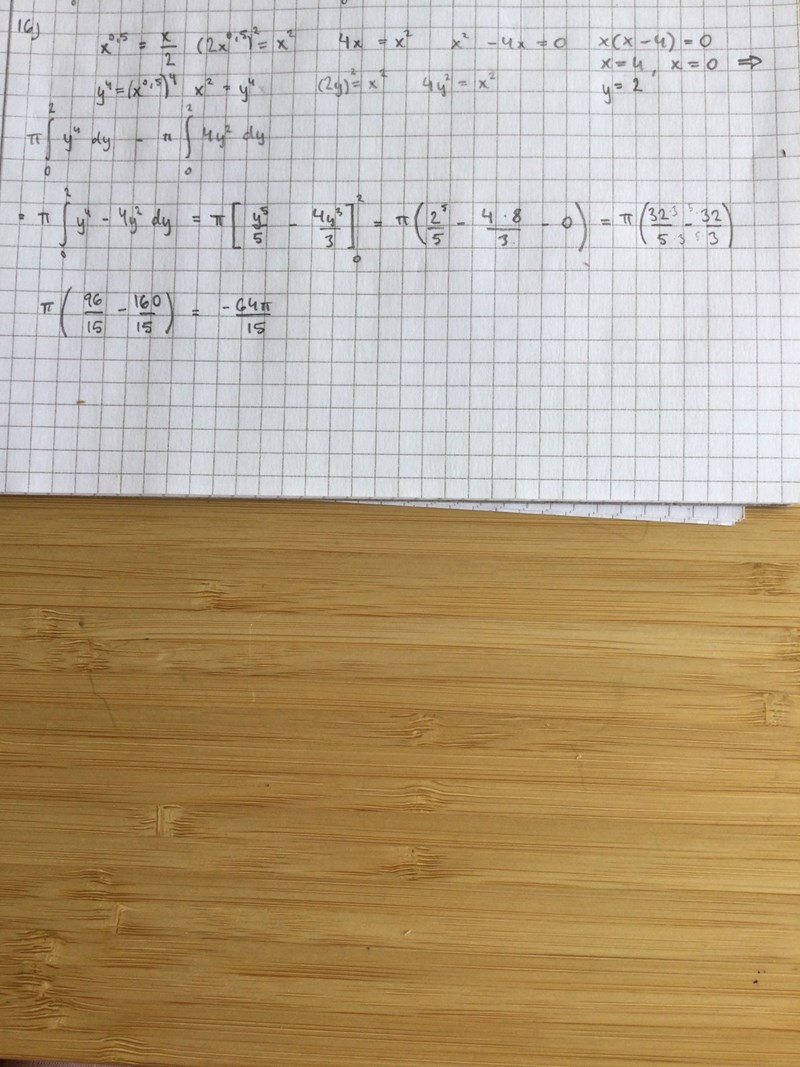 16)
x^0,5 = x/2 (2x^0,5)^2 = x^2 4x = x^2 x^2 - 4x = 0 x(x-4) = 0
x = 4, x = 0 ⇒
y^4 = (x^0,5)^4 x^2 = y^4 (2y)^2 = x^2 4y^2 = x^2 y = 2
π ∫_0^2 y^4 dy - π ∫_0^2 4y^2 dy
= π ∫_0^2 y^4 - 4y^2 dy = π [y^5/5 - 4y^3/3]_0^2 = π (2^5/5 - 4·8/3 - 0) = π (32·3/5·3 - 5·32/5·3)
π (96/15 - 160/15) = -64π/15